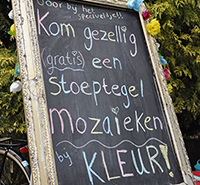 Door bij het speelveldje!!
Kom gezellig
(gratis) een
stoeptegel
mozaïeken
bij KLEUR!